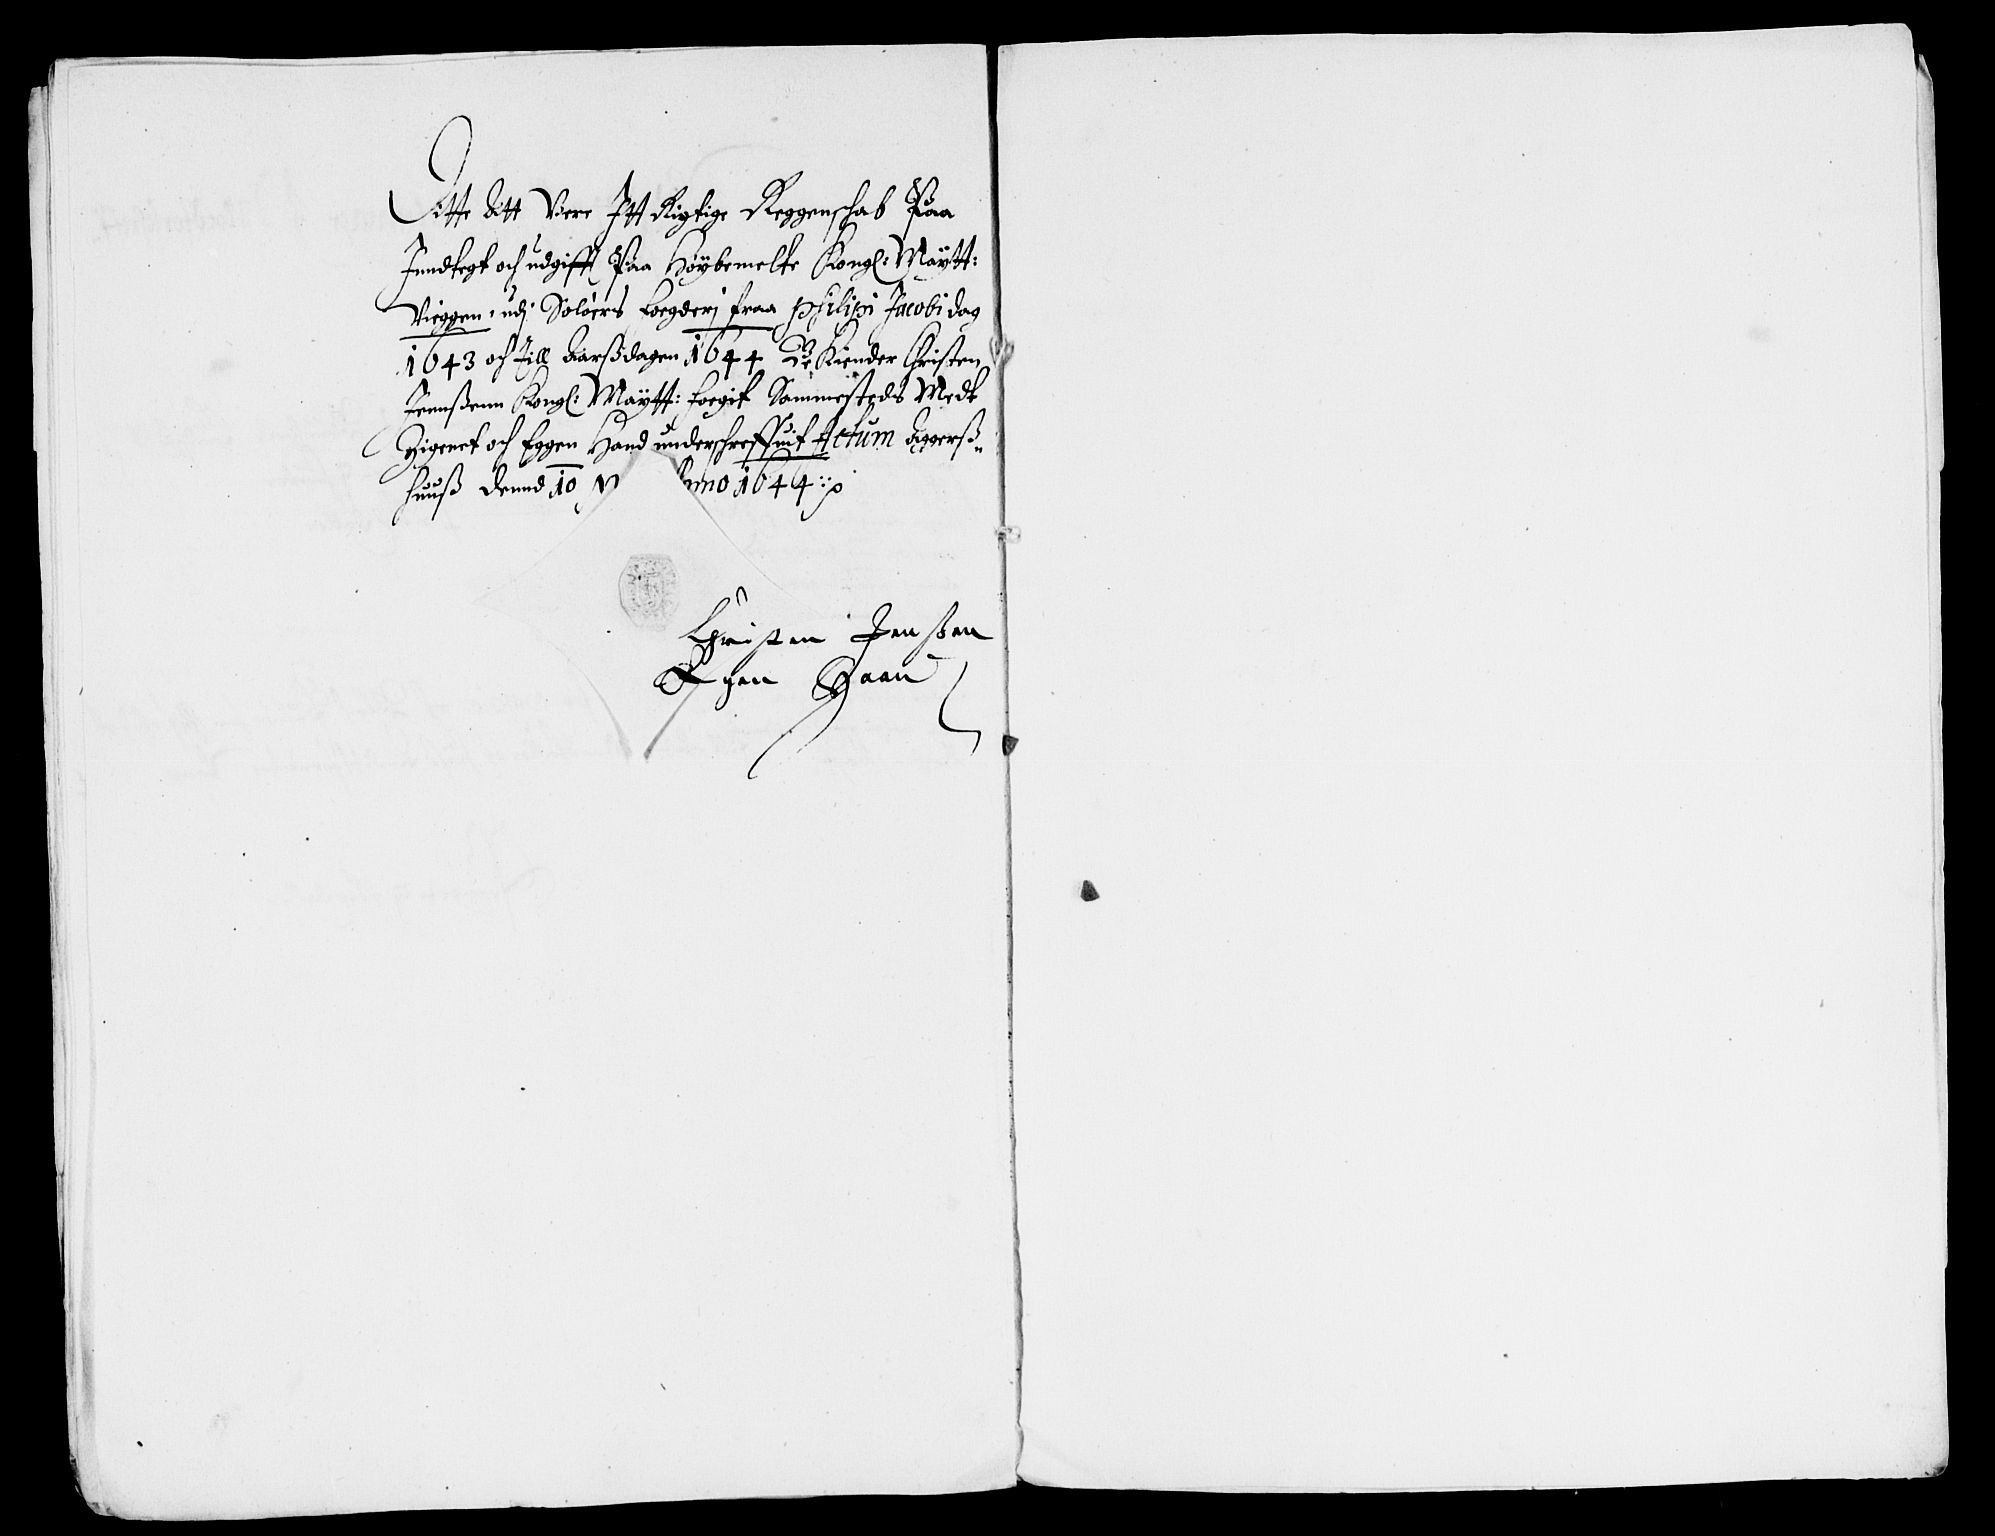 Att ditt Vere Itt Rigtige Reggenschab Paa
Inndtegt och udgifft Paa Høybemelte Kongl: Maÿtt:
Vieggen, udj Soløers foegderj fraa Philipi Jacobi dag
1643 och till Aarsdagen 1644 Be Kiender Christen
Jennßenn Kongl: Maÿtt: foegit Sammesteds Medt
Zigenet och Eggen Hand underschreffuit Actum Aggerß„
huuß dennd 10 Anno 1644
Christen Jenßen
Egen Haan